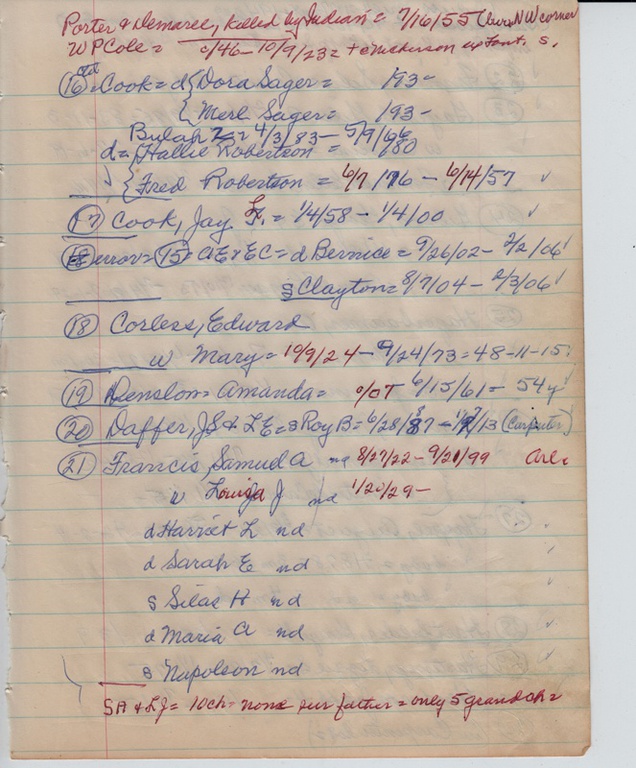 Porter & Demaree, killed by Indian = 7/16/55 (bury NW corner
WP Cole = c/46 - 10/9/23 = + c w Font. s.
(16) Cook = d { Dora Sager = 193-
{ Merl Sager = 193-
Bulah = 4/3/83 - 5/9/66
d = Hallie Robertson = 80
{ Fred Robertson = 6/7/76 - 6/14/57
(17) Cook, Jay F. = 1/4/58 - 1/4/00
(18) error = (15) = AE & EC = d Bernice = 9/26/02 - 2/2/06
s Clayton = 8/7/04 - 2/3/06
(18) Corless, Edward
w Mary = 10/9/24 - 9/24/73 = 48-11-15
(19) Denslow = Amanda = 6/15/61 - 54y
(20) Daffer, JS & LE = s Roy B = 6/28/87 - /13 (Carpenter)
(21) Francis, Samuel A nd 8/27/22 - 9/21/99
w Louiza J nd 1/20/29 -
d Harriet L nd
d Sarah E nd
s Silas H nd
d Maria A nd
s Napoleon nd
SA & LJ = 10 ch = none sur father = only 5 grand ch =